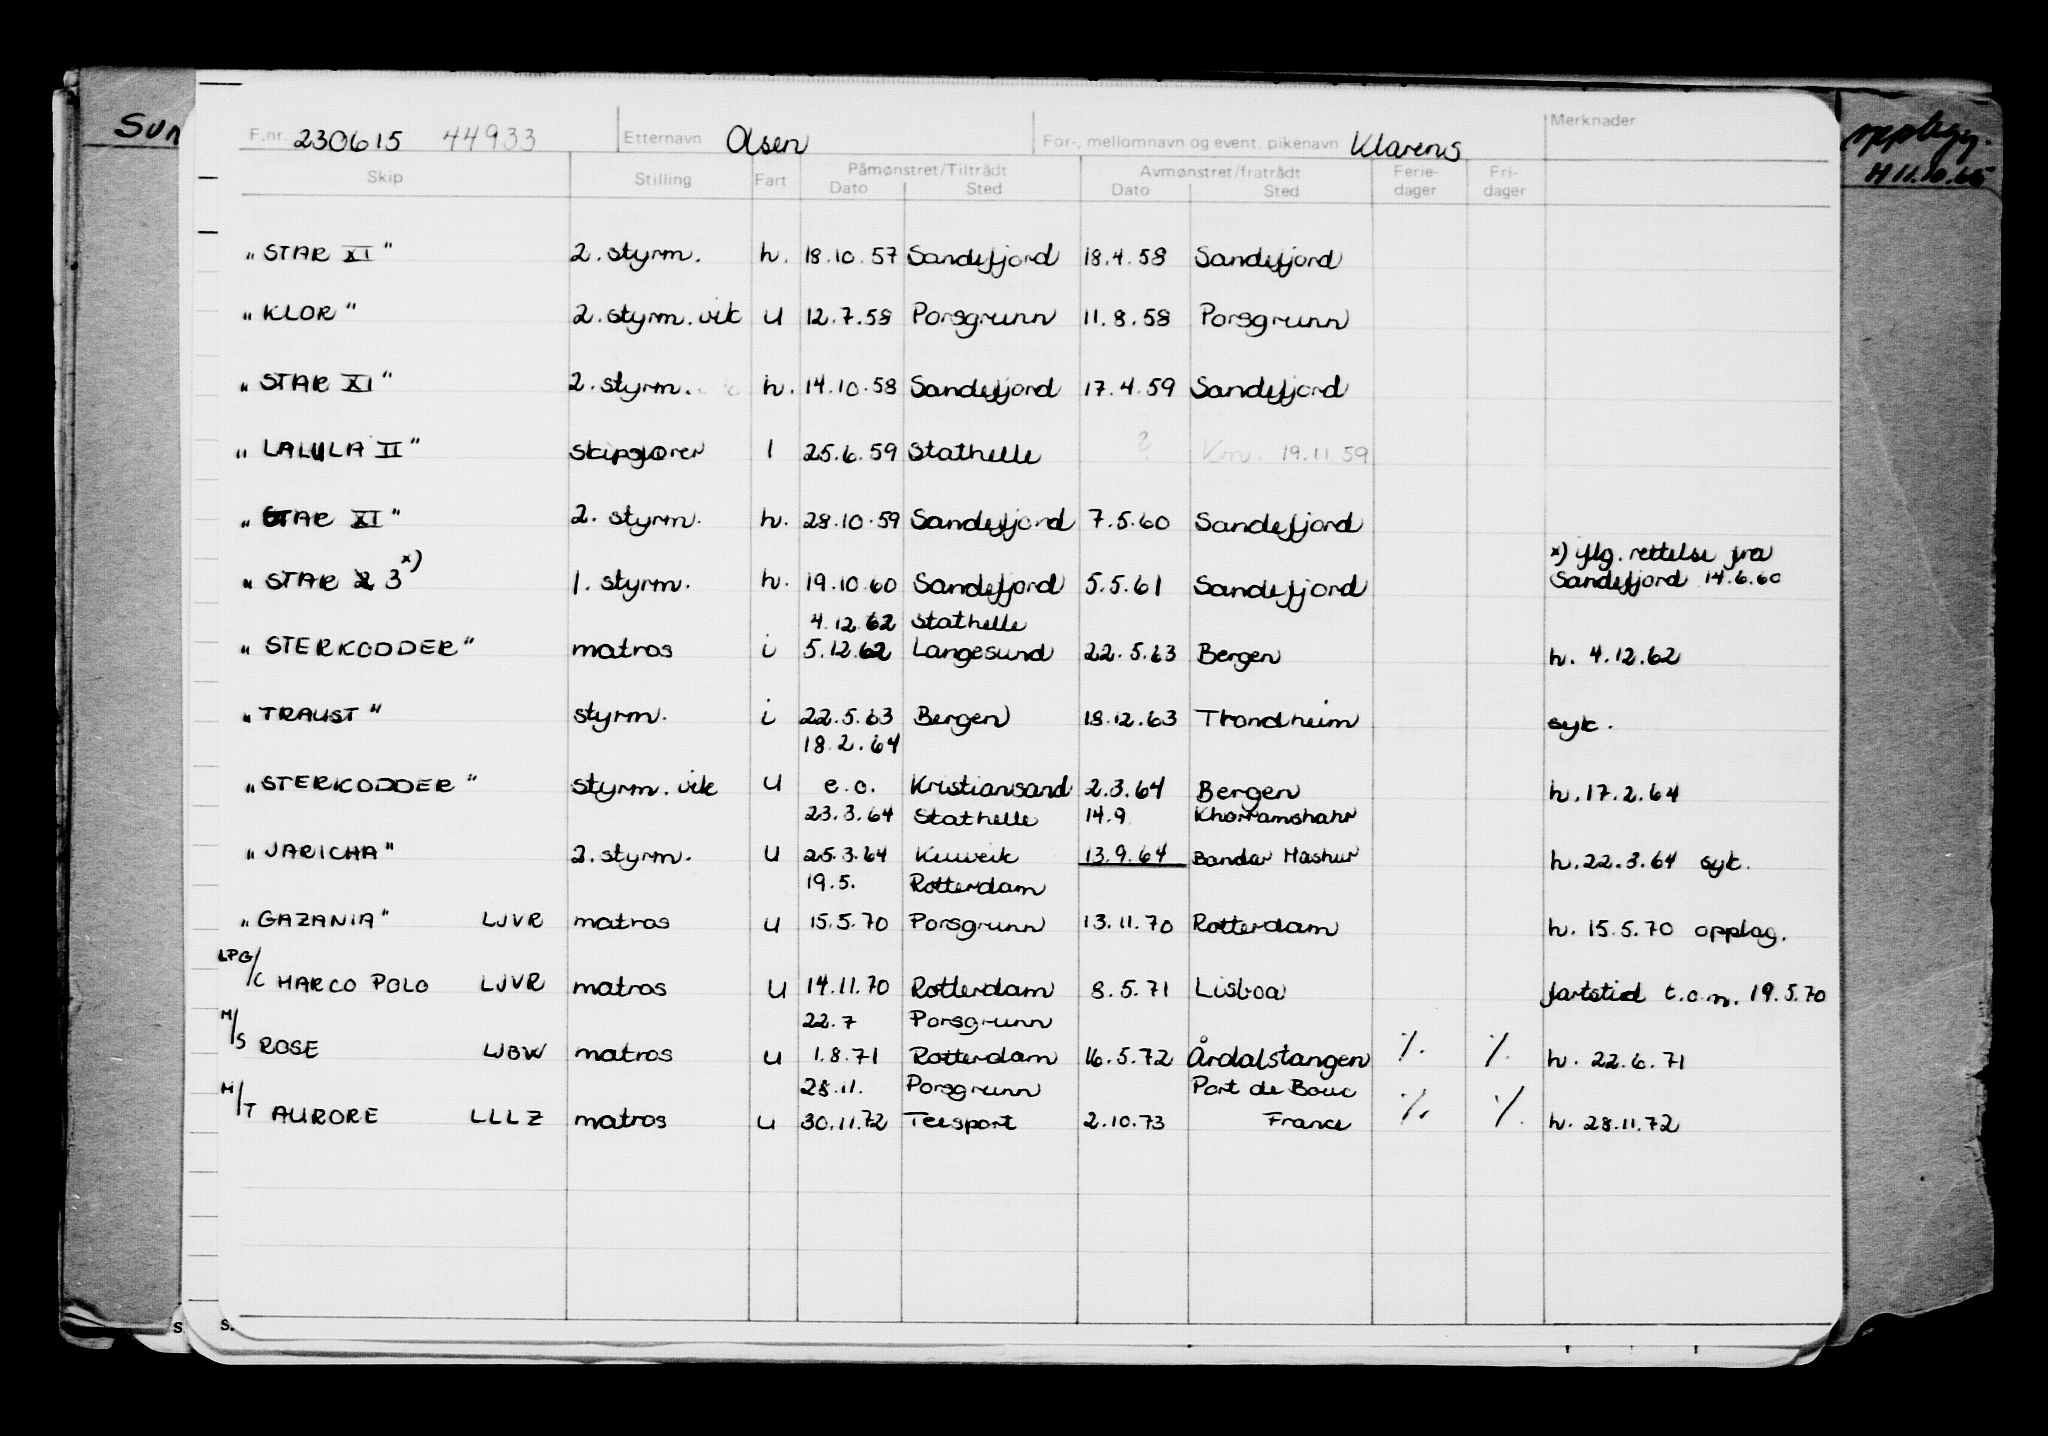 Sun
opplagg.
H 11.10.65
F.nr. 230615 44933 Etternavn Olsen For-, mellomnavn og event. pikenavn Klarens Merknader
Skip Stilling Fart Påmønstret/Tiltrådt Avmønstret/fratrådt Ferie- Fri-
Dato Sted Dato Sted dager dager
"STAR XI" 2. styrm. h. 18.10.57 Sandefjord 18.4.58 Sandefjord
"KLOR" 2. styrm. vik U 12.7.58 Porsgrunn 11.8.58 Porsgrunn
"STAR XI" 2. styrm. h. 14.10.58 Sandefjord 17.4.59 Sandefjord
"LALULA II" skipsfører l 25.6.59 Stathelle ? Km. 19.11.59
"STAR XI" 2. styrm. h. 28.10.59 Sandefjord 7.5.60 Sandefjord
x) iflg. rettelse fra
"STAR 2 3 x) 1. styrm. h. 19.10.60 Sandefjord 5.5.61 Sandefjord Sandefjord 14.6.60
4.12.62 Stathelle
"STERKODDER" matros i 5.12.62 Langesund 22.5.63 Bergen h. 4.12.62
"TRAUST" styrm. i 22.5.63 Bergen 18.12.63 Trondheim syk.
18.2.64
"STERKODDER" styrm. vik U e.o. Kristiansand 2.3.64 Bergen h. 17.2.64
23.3.64 Stathelle 14.9 Khorramshahr
"JARICHA" 2. styrm. U 25.3.64 13.9.64 Bandar Mashur h. 22.3.64 syk.
19.5. Rotterdam
"GAZANIA" LJVR matros U 15.5.70 Porsgrunn 13.11.70 Rotterdam h. 15.5.70 opplag.
LPG/C MARCO POLO LJVR matros U 14.11.70 Rotterdam 8.5.71 Lisboa fartstid t.o.m. 19.5.70
22.7 Porsgrunn
M/S ROSE LJBW matros U 1.8.71 Rotterdam 16.5.72 Årdalstangen ./. ./. h. 22.6.71
28.11. Porsgrunn Port de Bouc
M/T AURORE LLLZ matros U 30.11.72 Teesport 2.10.73 France ./. ./. h. 28.11.72
S. S.